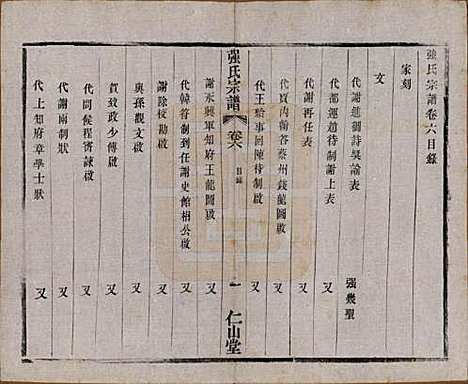 強氏宗譜卷六目錄
家刻
文
代謝進御詩獎諭表 強幾聖
代都運趙待制謝上表 又
代謝再任表 又
代賈內翰答蔡州錢龍圖啟 又
代王給事回陳待制啟 又
強氏宗譜 卷六 目錄 一 仁山堂
謝永興軍知府王龍圖啟 又
代韓答制到任謝史館相公啟 又
謝除校勘啟 又
與孫觀文啟 又
賀致政少傅啟 又
代問候程密諫啟 又
代謝兩制狀 又
代上知府章學士狀 又